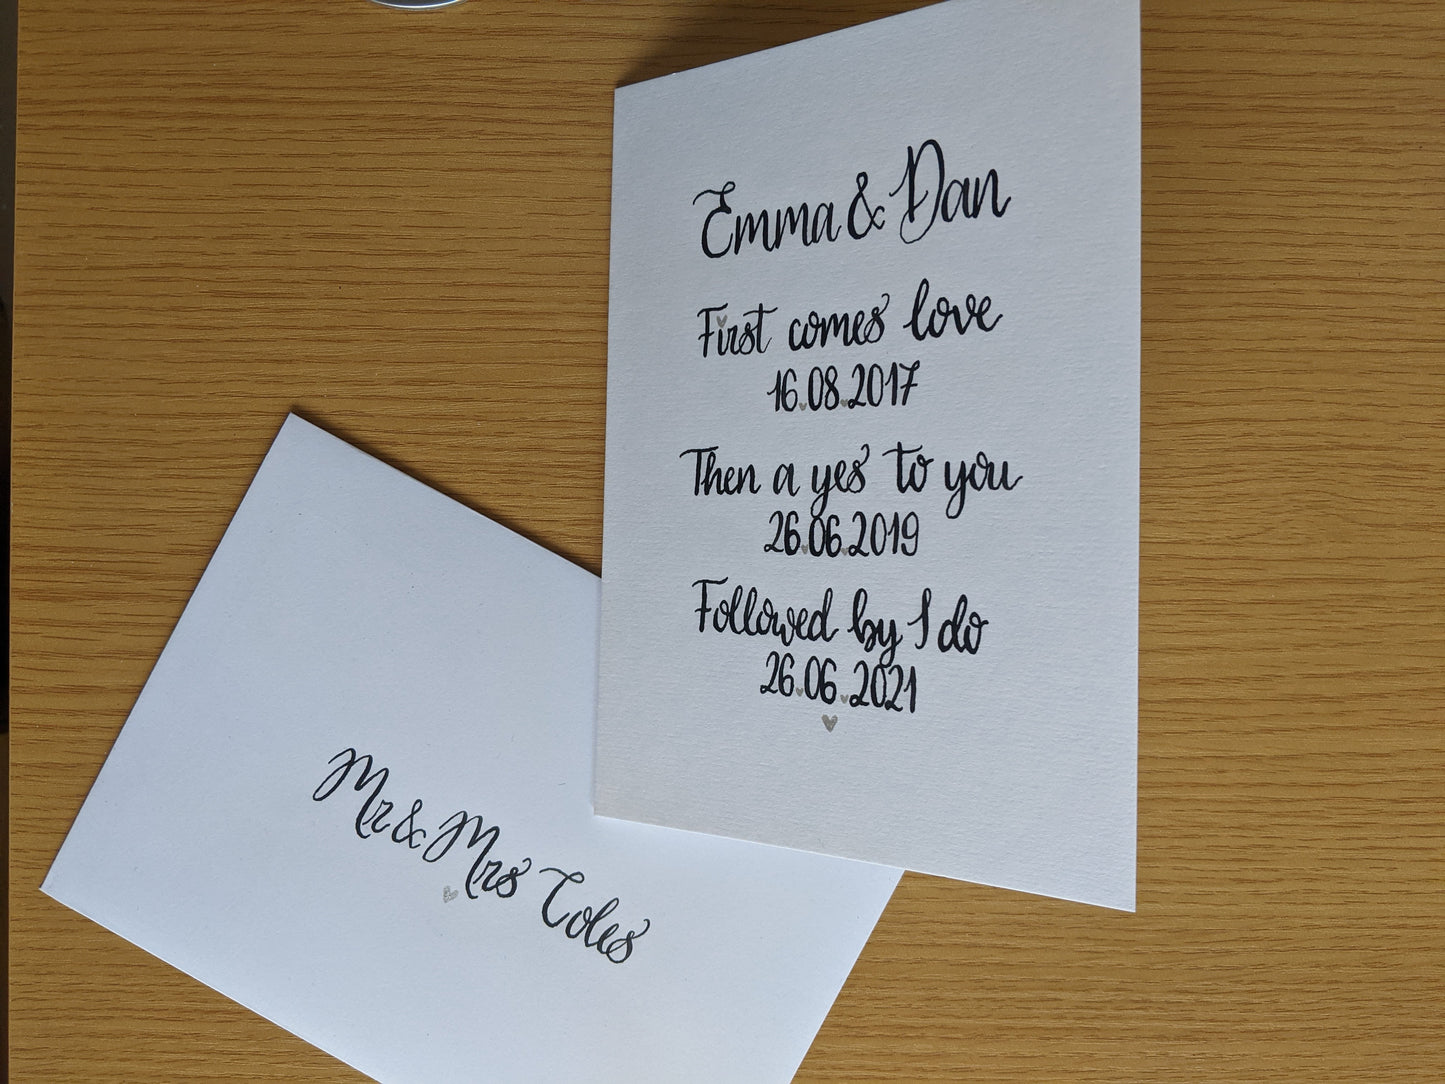 Emma & Dan
First comes love
16.08.2017
Then a yes to you
26.06.2019
Followed by I do
26.06.2021
Mr & Mrs Coles